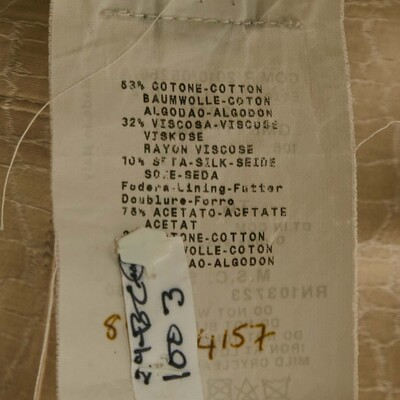 53% COTONE-COTTON
BAUMWOLLE-COTON
ALGODAO-ALGODON
32% VISCOSA-VISCOSE
VISKOSE
RAYON VISCOSE
10% SETA-SILK-SEIDE
SOIE-SEDA
Fodera-Lining-Futter
Doublure-Forro
75% ACETATO-ACETATE
ACETAT
COTONE-COTTON
WOLLE-COTON
DAO-ALGODON
M.S.C.
RN103723
8
1003
4157